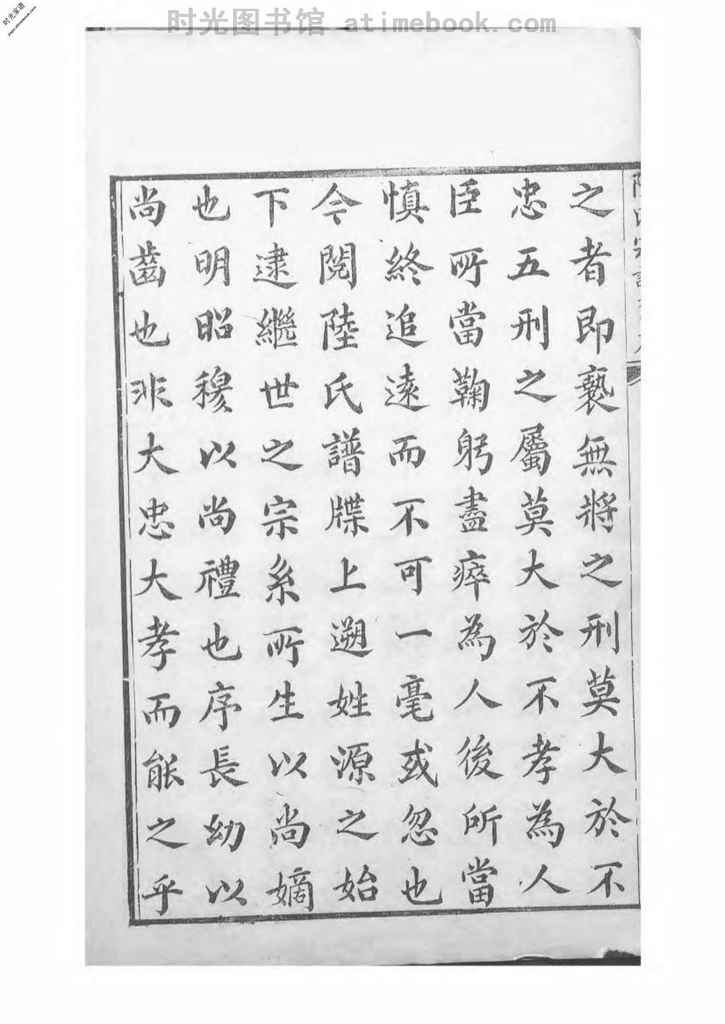 时光图书馆 atimebook.com
之者即褻無將之刑莫大於不
忠五刑之屬莫大於不孝為人
臣所當鞠躬盡瘁為人後所當
慎終追遠而不可一毫或忽也
今閱陸氏譜牒上遡姓源之始
下逮繼世之宗系所生以尚嫡
也明昭穆以尚禮也序長幼以
尚齒也非大忠大孝而能之乎